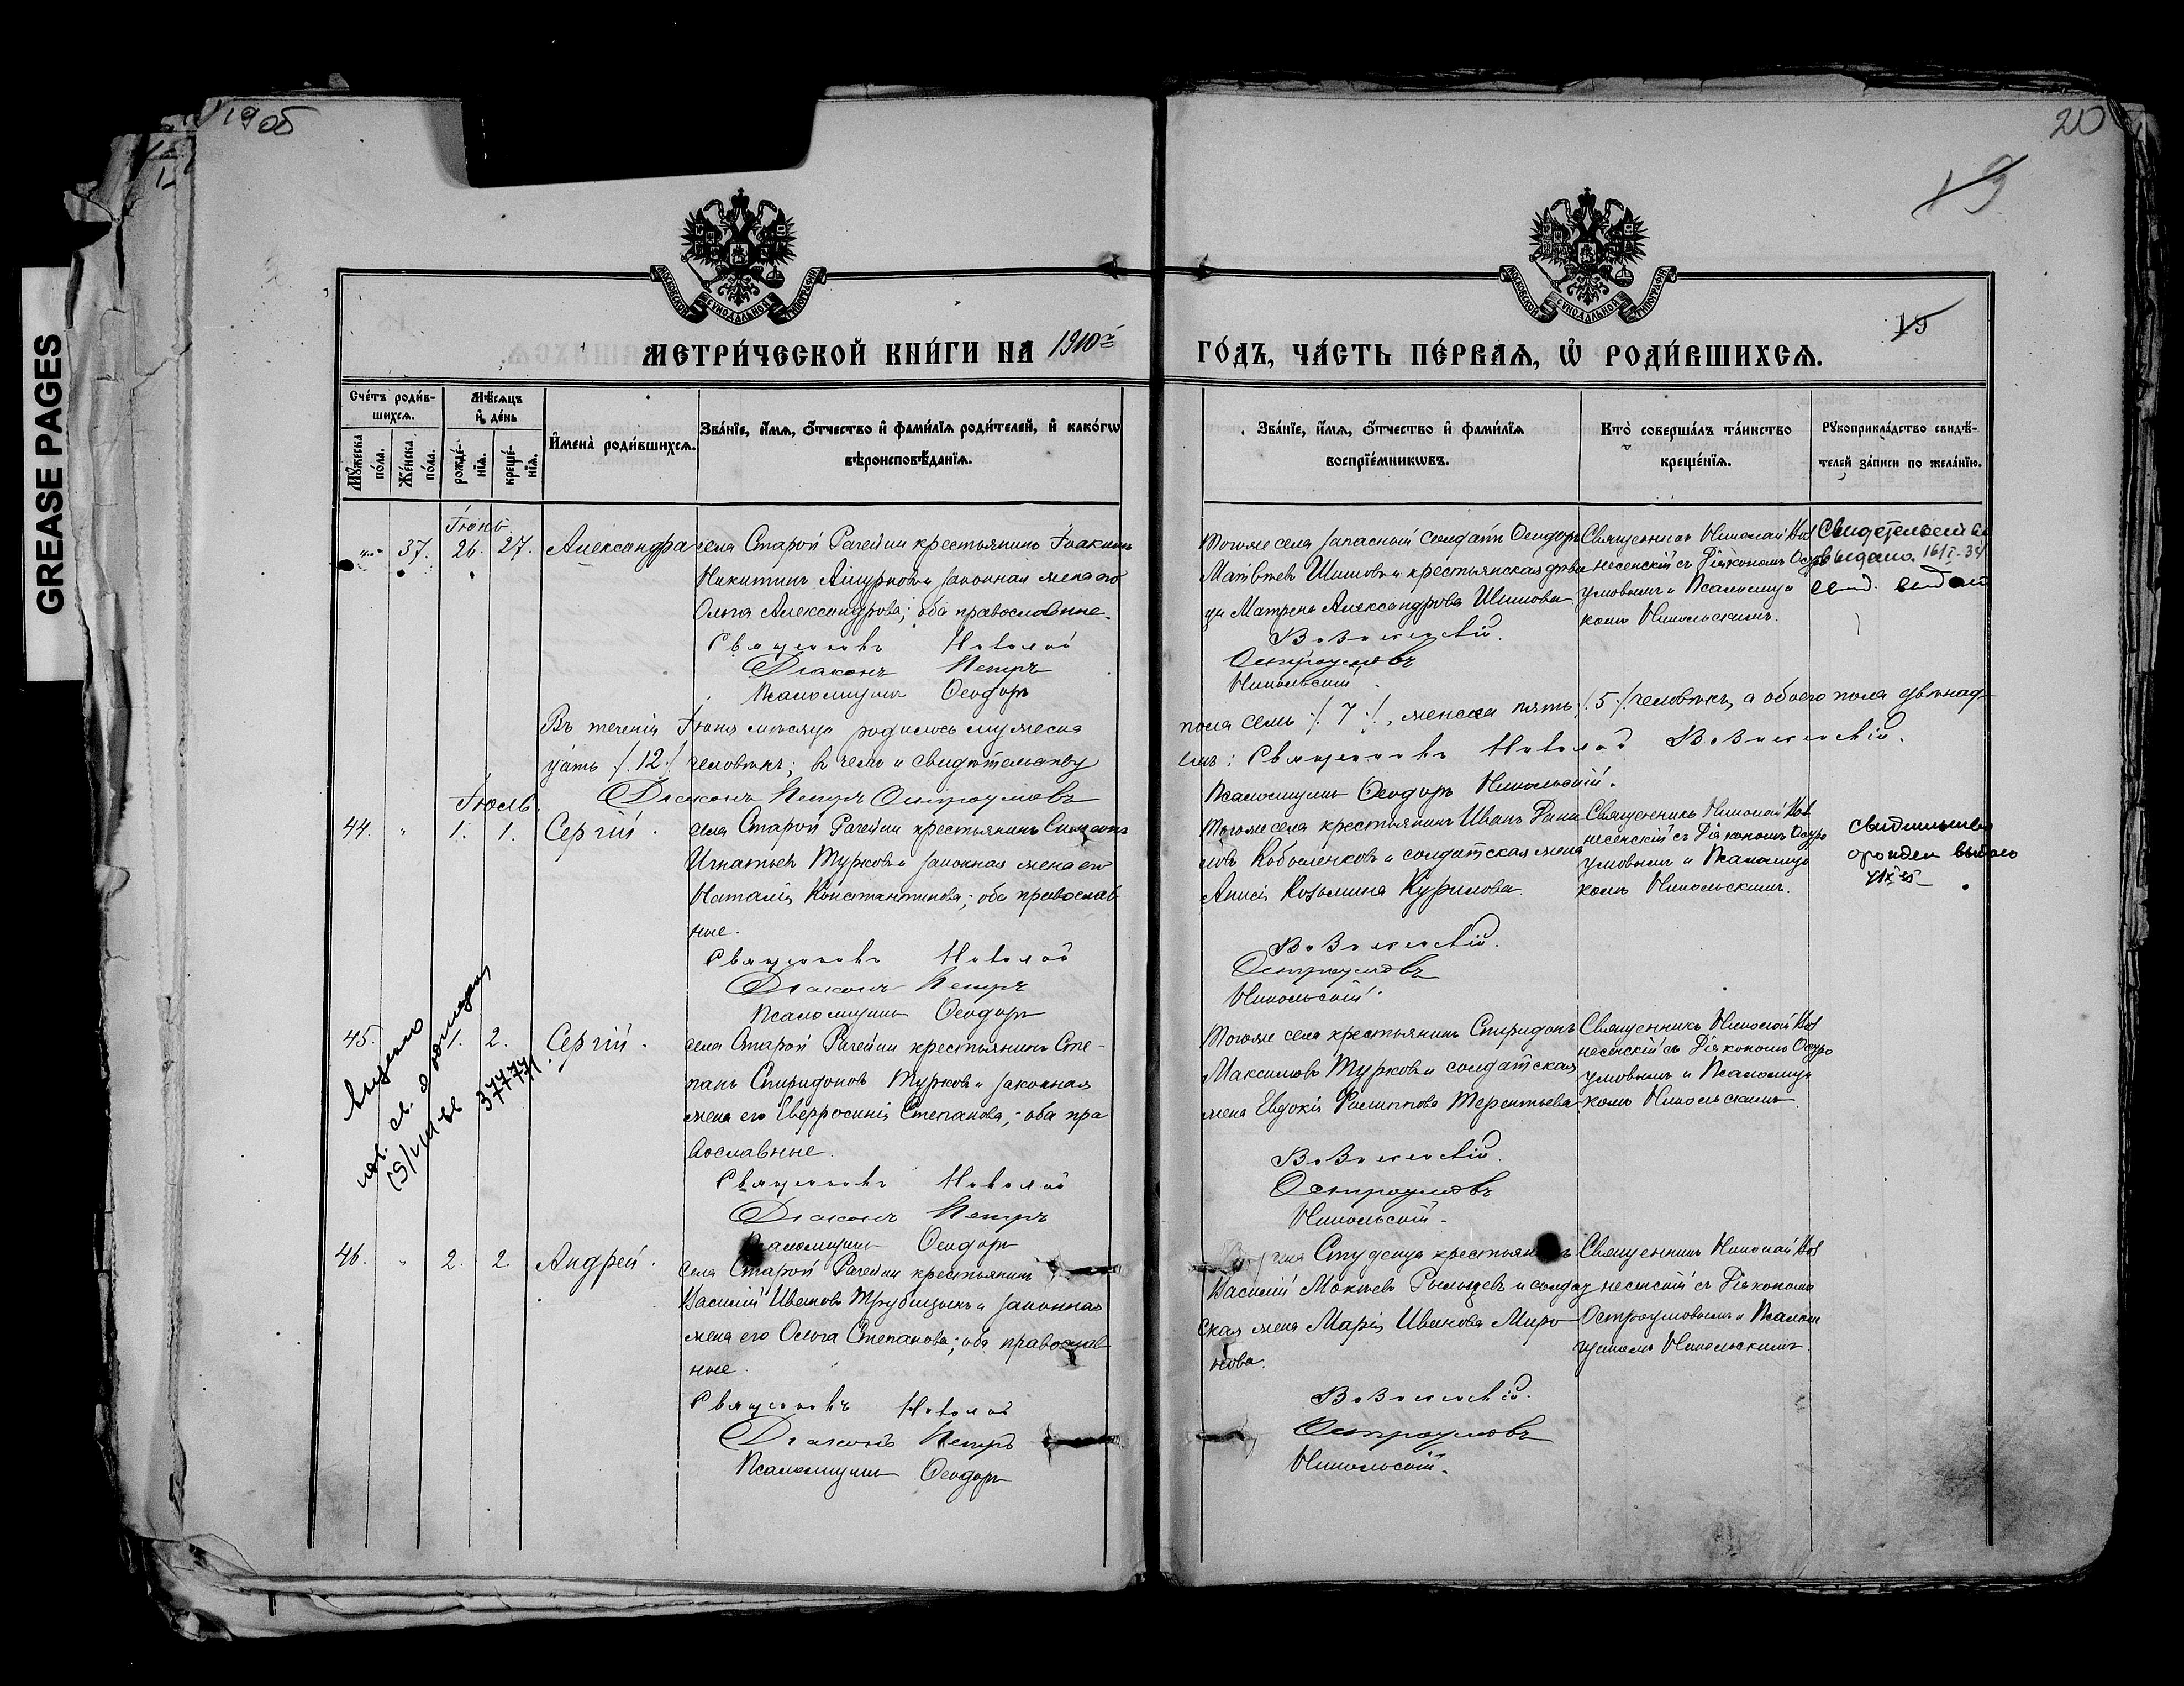 GREASE PAGES
19 об
20
19
19
МОСКОВСКОЙ СѴНОДАЛЬНОЙ ТИПОГРАФІИ
МОСКОВСКОЙ СѴНОДАЛЬНОЙ ТИПОГРАФІИ
МЕТРИ́ЧЕСКОЙ КНИ́ГИ НА 1910й
ГО́ДЪ, ЧА́СТЬ ПЕ́РВАѦ, Ѡ҆ РОДИ́ВШИХСѦ.
Сче́тъ роди́в-
шихсѧ.
Мꙋ́жеска по́ла.
Же́нска по́ла.
Мѣ́сѧцъ
и҆ де́нь
рожде́-
нїѧ.
креще́-
нїѧ.
И҆мена̀ роди́вшихсѧ.
Зва́нїе, и҆́мѧ, ѻ҆́тчество и҆ фами́лїѧ роди́телей, и҆ како́гѡ
вѣроисповѣ́данїѧ.
Зва́нїе, и҆́мѧ, ѻ҆́тчество и҆ фами́лїѧ
воспрїе́мникѡвъ.
Кто̀ соверша́лъ та́инство
креще́нїѧ.
Рꙋкоприкла́дство свидѣ́-
телей за́писи по жела́нїю.
Іюнь
" 37. 26. 27. Александра
села Старой Рачейки крестьянинъ Іоакимъ
Никитинъ и законная жена его
Ольга Александрова; оба православные.
Священникъ Николай
Діаконъ Петръ
Псаломщикъ Ѳеодоръ
Тогоже села запасный солдатъ Ѳеодоръ
Матвѣевъ Шишовъ и крестьянская дѣви
ца Матрена Александрова Шишова.
Вознесенскій.
Остроумовъ
Никольскій.
Священникъ Николай Воз
несенскій съ Діакономъ Остро
умовымъ и Псаломщи
комъ Никольскимъ.
выдано 16/I-34
свид. выдан
Въ теченіи Іюня мѣсяца родилось мужеска
пола семь /. 7 ./, женска пять /. 5 ./ человѣкъ, а обоего пола двѣнад
цать /. 12 ./ человѣкъ; въ чемъ и свидѣтельству
емъ: Священникъ Николай Вознесенскій.
Діаконъ Петръ Остроумовъ
Псаломщикъ Ѳеодоръ Никольскій.
Іюль.
44. " 1. 1. Сергій.
села Старой Рачейки крестьянинъ Симеонъ
Игнатьевъ Турковъ и законная жена его
Наталія Константинова; оба православ
ные.
Священникъ Николай
Діаконъ Петръ
Псаломщикъ Ѳеодоръ
Тогоже села крестьянинъ Иванъ Дани
ловъ Кобыленковъ и солдатская жена
Анисія Козьмина Курилова.
Вознесенскій.
Остроумовъ
Никольскій.
Священникъ Николай Воз
несенскій съ Діакономъ Остро
умовымъ и Псаломщи
комъ Никольскимъ.
о рожден выдано
45. 1. 2. Сергій.
села Старой Рачейки крестьянинъ Сте-
панъ Спиридоновъ Турковъ и законная
жена его Евфросинія Степанова; оба пра
вославные.
Священникъ Николай
Діаконъ Петръ
Псаломщикъ Ѳеодоръ
Тогоже села крестьянинъ Спиридонъ
Максимовъ Турковъ и солдатская
жена Евдокія Филиппова Терентьева.
Вознесенскій.
Остроумовъ
Никольскій.
Священникъ Николай Воз
несенскій съ Діакономъ Остро
умовымъ и Псаломщи
комъ Никольскимъ.
46. " 2. 2. Андрей.
села Старой Рачейки крестьянинъ
Василій Ивановъ и законная
жена его Ольга Степанова; оба православ
ные.
Священникъ Николай
Діаконъ Петръ
Псаломщикъ Ѳеодоръ
села Студенца крестьянинъ
Василій Мокіевъ и солдат
ская жена Марія Иванова Миро
нова.
Вознесенскій.
Остроумовъ
Никольскій.
Священникъ Николай Воз
несенскій съ Діакономъ
Остроумовымъ и Псалом
щикомъ Никольскимъ.